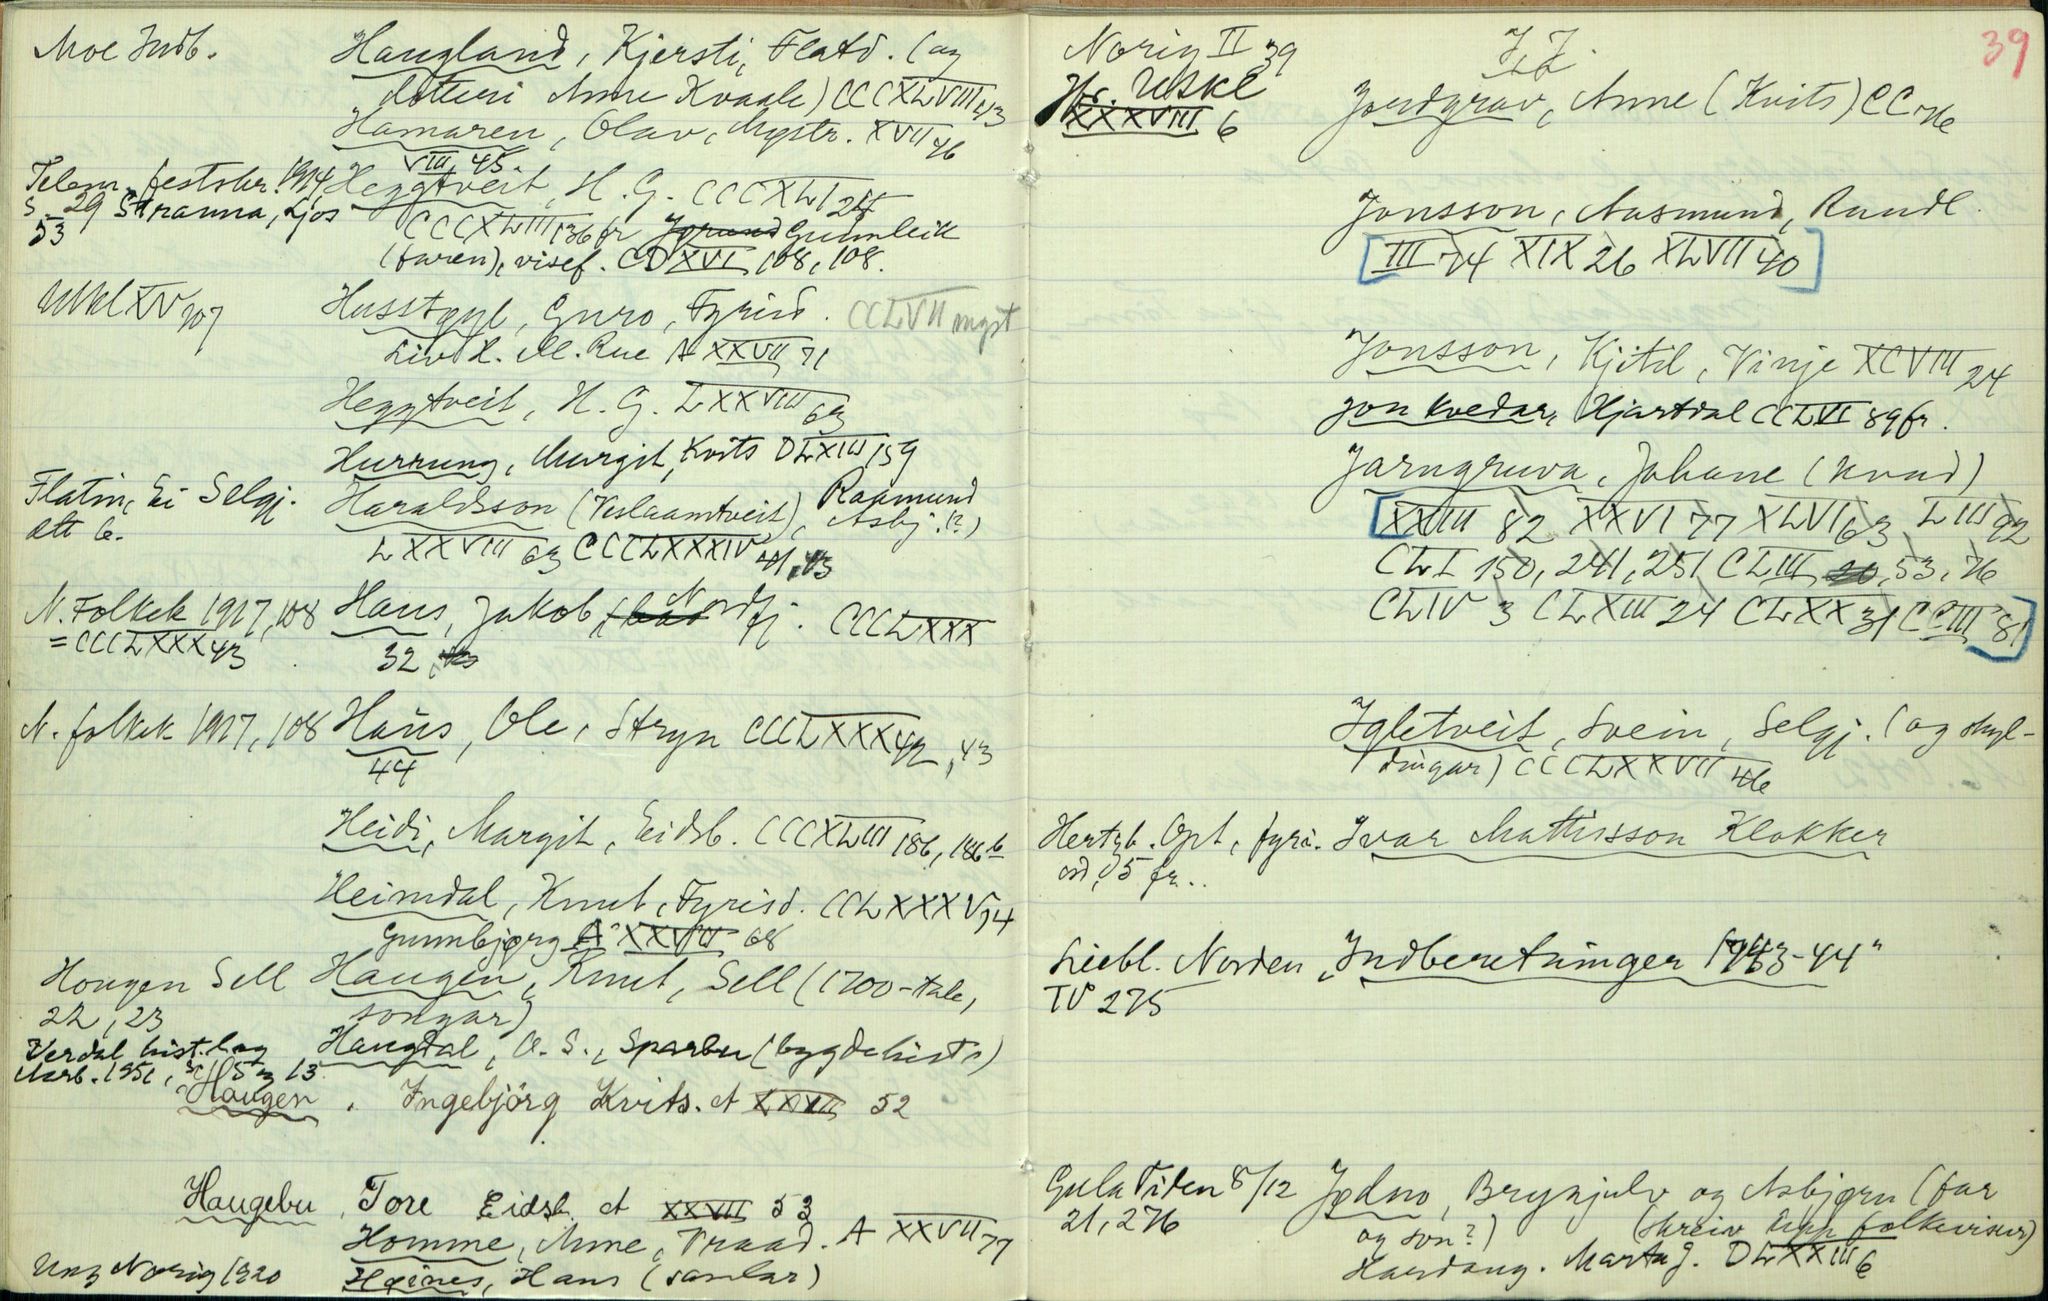 Moe Indb. Haugland, Kjersti, Flatd. (og
dotteri Anne Kvaale) CCCXLVIII 43
Hamaren, Olav, Mystr. XVII 46
VIII 45.
Telem. festskr. 1914 Heggtveit, H. G. CCCXLI 24
s. 29 Stranna, Ljos CCCXLIII 136 fr Gunnleik
53 (faren), visef. CDXVI 108, 108.
Uskl XV 107 Husstøyl, Guro, Fyrisd. CCLVII mgst
Liv H. M. Rue A XXVII 71
Heggtveit, H. G. LXXVIII 63
Hurrung, Margit, Kvits DLXIII 159
Flatin, Ei Selgj. Haraldsson (Veslaamtveit), Raamund
ått 6. Asbj. (?)
LXXVIII 63 CCCLXXXIV 41, 43
N. Folkek 1917, 108 Haus, Jakob, Nordfj. CCCLXXX
= CCCLXXX 43 32
N. folkek 1917, 108 Haus, Ole, Stryn CCCLXXX 42, 43
44
Heidi, Margit, Eidsb. CCCXLIII 186, 186 b
Heimdal, Knut, Fyrisd. CCLXXXV 74
Gunnbjørg A XXVII 68
Hougen Sell Haugen, Knut, Sell (1700-tale,
22, 23 songar)
Verdal hist.lag Haugdal, O. S., Sparbu (bygdehist.)
Aarb. 1951, s. 115 og 13
Haugen, Ingebjörg Kvits. A XXVII 52
Haugebu, Tore Eidsb. A XXVII 53
Homme, Anne, Vraad. A XXVII 77
Ung Norig 1920 Høines, Hans (samlar)
39
Norig II 39 I, J.
Hr. Uskl Jordgrav, Anne (Kvits) CC 76
XXXVIII 6
Jonsson, Aasmund, Raudl.
[III 74 XIX 26 XLVII 40]
Jonsson, Kjitil, Vinje XCVIII 24
Jon Kvedar, Hjartdal CCLVI 89 fr.
Jarngruva, Johane (Kvad)
[XXIII 82 XXVI 77 XLVI 63 LIII 92
CLI 150, 241, 251 CLIII 20, 53, 76
CLIV 3 CLXIII 24 CLXX 31 CCIII 81]
Igletveit, Svein, Selgj. (og skyl-
dingar) CCCLXXVII 46
Hertzb. Opt, fyri. Ivar Mattisson Klokker
ord, 5 fr..
Liebl. Norden „Indberetninger 1743-44"
IV 275
Gula Tiden 8/12 Jødno, Brynjulv og Asbjørn (far
21, 276 og son?) (skreiv upp folkevisur)
Hardang. Marta J. DLXXIII 6